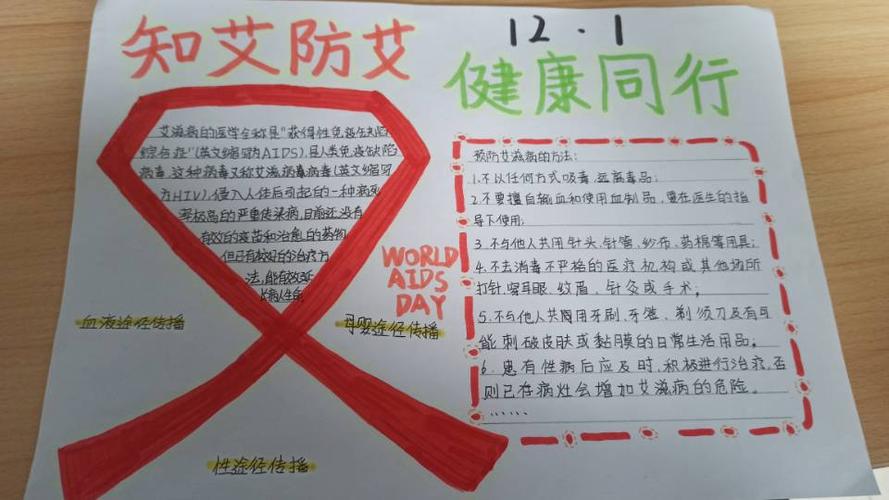 知艾防艾
12.1
健康同行
艾滋病的医学全称是"获得性免疫缺陷
综合症"(英文缩写为AIDS),是人类免疫缺陷
病毒,这种病毒又称艾滋病毒病毒(英文缩写
为HIV),侵入人体后引起的一种病死
率极高的严重传染病,目前还没有
有效的疫苗和治愈的药物
但已有较好的治疗方
法,能有效延
长病人生命
WORLD
AIDS
DAY
血液途径传播
母婴途径传播
性途径传播
预防艾滋病的方法:
1.不以任何方式吸毒,远离毒品;
2.不要擅自输血和使用血制品,要在医生的指
导下使用;
3.不与他人共用针头、针管、纱布、药棉等用具;
4.不去消毒不严格的医疗机构或其他场所
打针、穿耳眼、纹眉、针灸或手术;
5.不与他人共用牙刷、牙签、剃须刀及有可
能刺破皮肤或黏膜的日常生活用品。
6.患有性病后应及时,积极进行治疗,否
则已存病灶会增加艾滋病的危险。
......